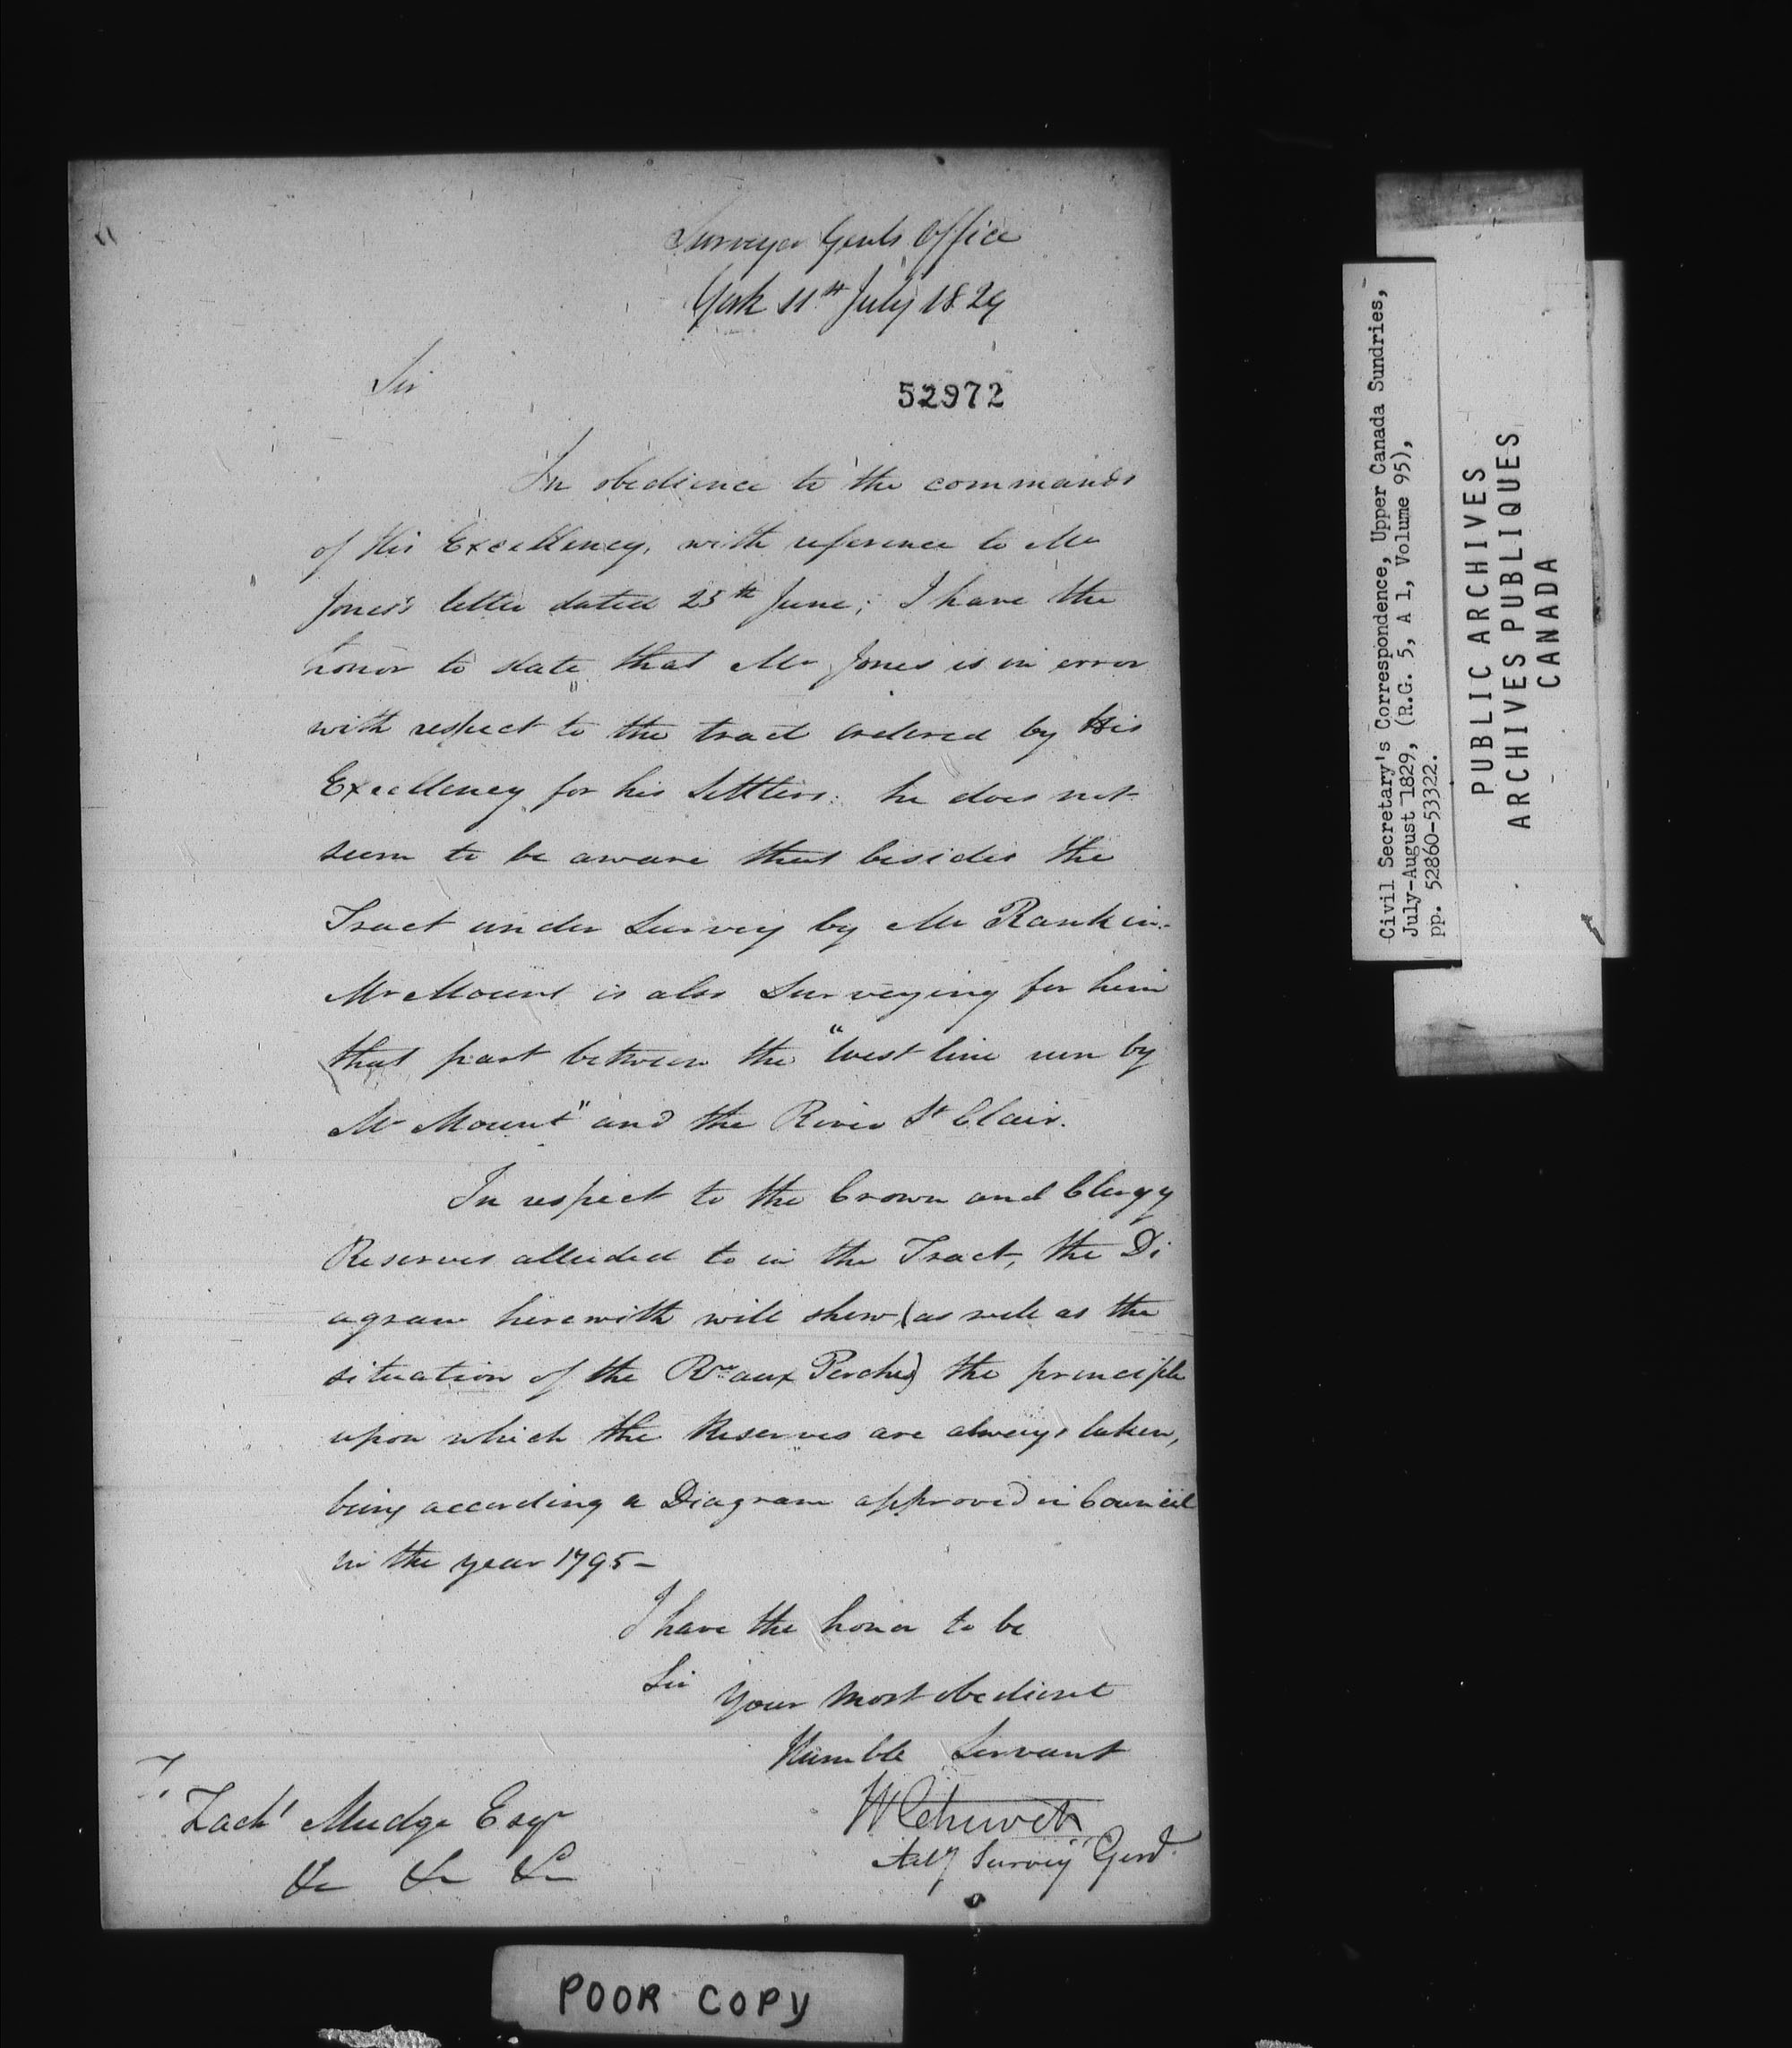 Surveyor Genls Office
York 11th July 1829
Sir
52972
In obedience to the commands
of His Excellency, with reference to Mr
Jones's letter dated 25th June; I have the
honor to state that Mr Jones is in error
with respect to the tract ordered by His
Excellency for his Settlers: he does not
seem to be aware that besides the
Tract under Survey by Mr Rankin.
Mr Mount is also Surveying for him
that part between the "West line run by
Mr Mount" and the River St Clair.
In respect to the Crown and Clergy
Reserves alluded to in the Tract, the Di
agram herewith will shew (as well as the
situation of the Rre aux Perches) the principle
upon which the Reserves are always taken,
being according a Diagram approved in Council
in the year 1795 -
I have the honor to be
Sir
Your most obedient
Humble Servant
W Chewett
Actg Survey Genl.
Zach' Mudge Esqr
&c &c &c
POOR COPY
Civil Secretary's Correspondence, Upper Canada Sundries,
July-August 1829, (R.G. 5, A 1, Volume 95),
pp. 52860-53322.
PUBLIC ARCHIVES
ARCHIVES PUBLIQUES
CANADA